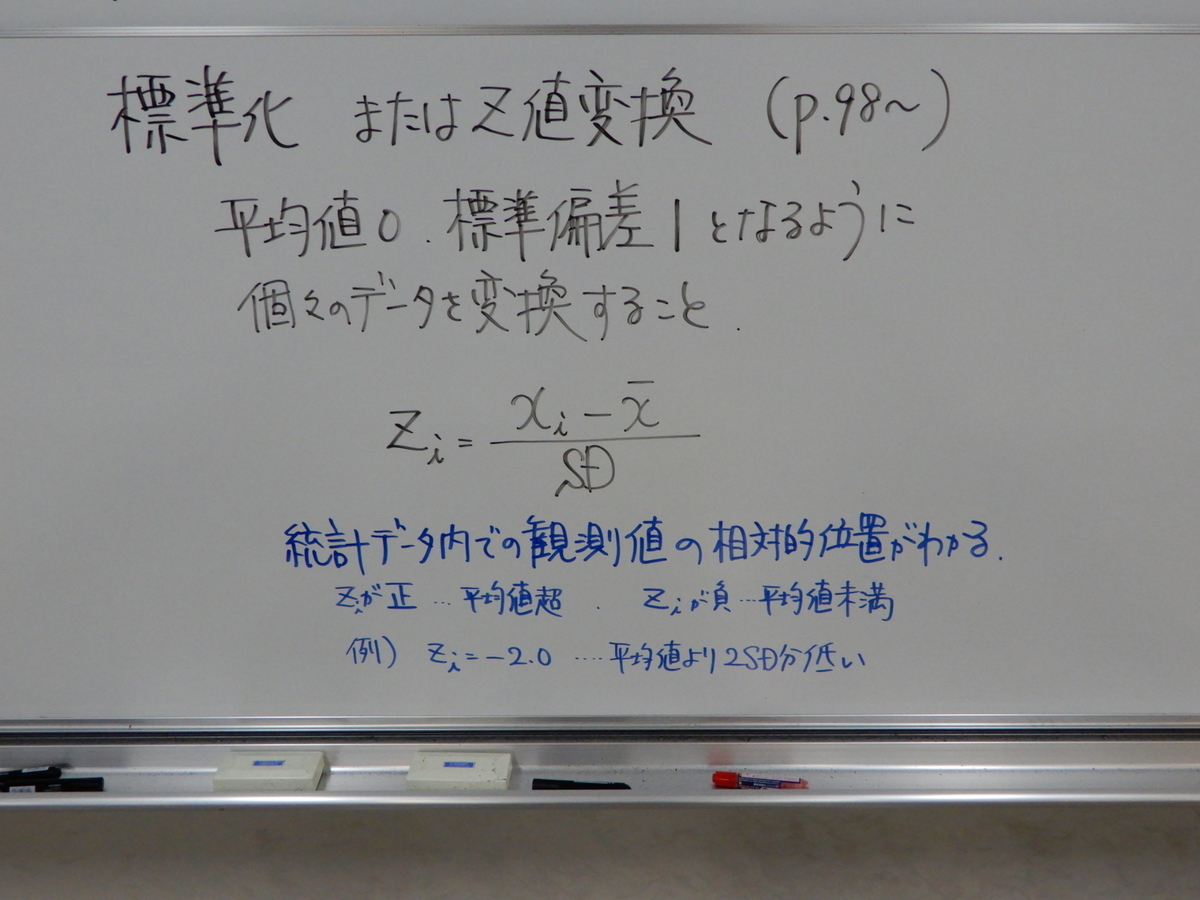 標準化 または Z値変換 (p.98〜)
平均値0. 標準偏差1となるように
個々のデータを変換すること.
Zi = (xi − x̄) / SD
統計データ内での観測値の相対的位置がわかる.
Ziが正 … 平均値超 . Ziが負 … 平均値未満
例) Zi = −2.0 …. 平均値より2SD分低い